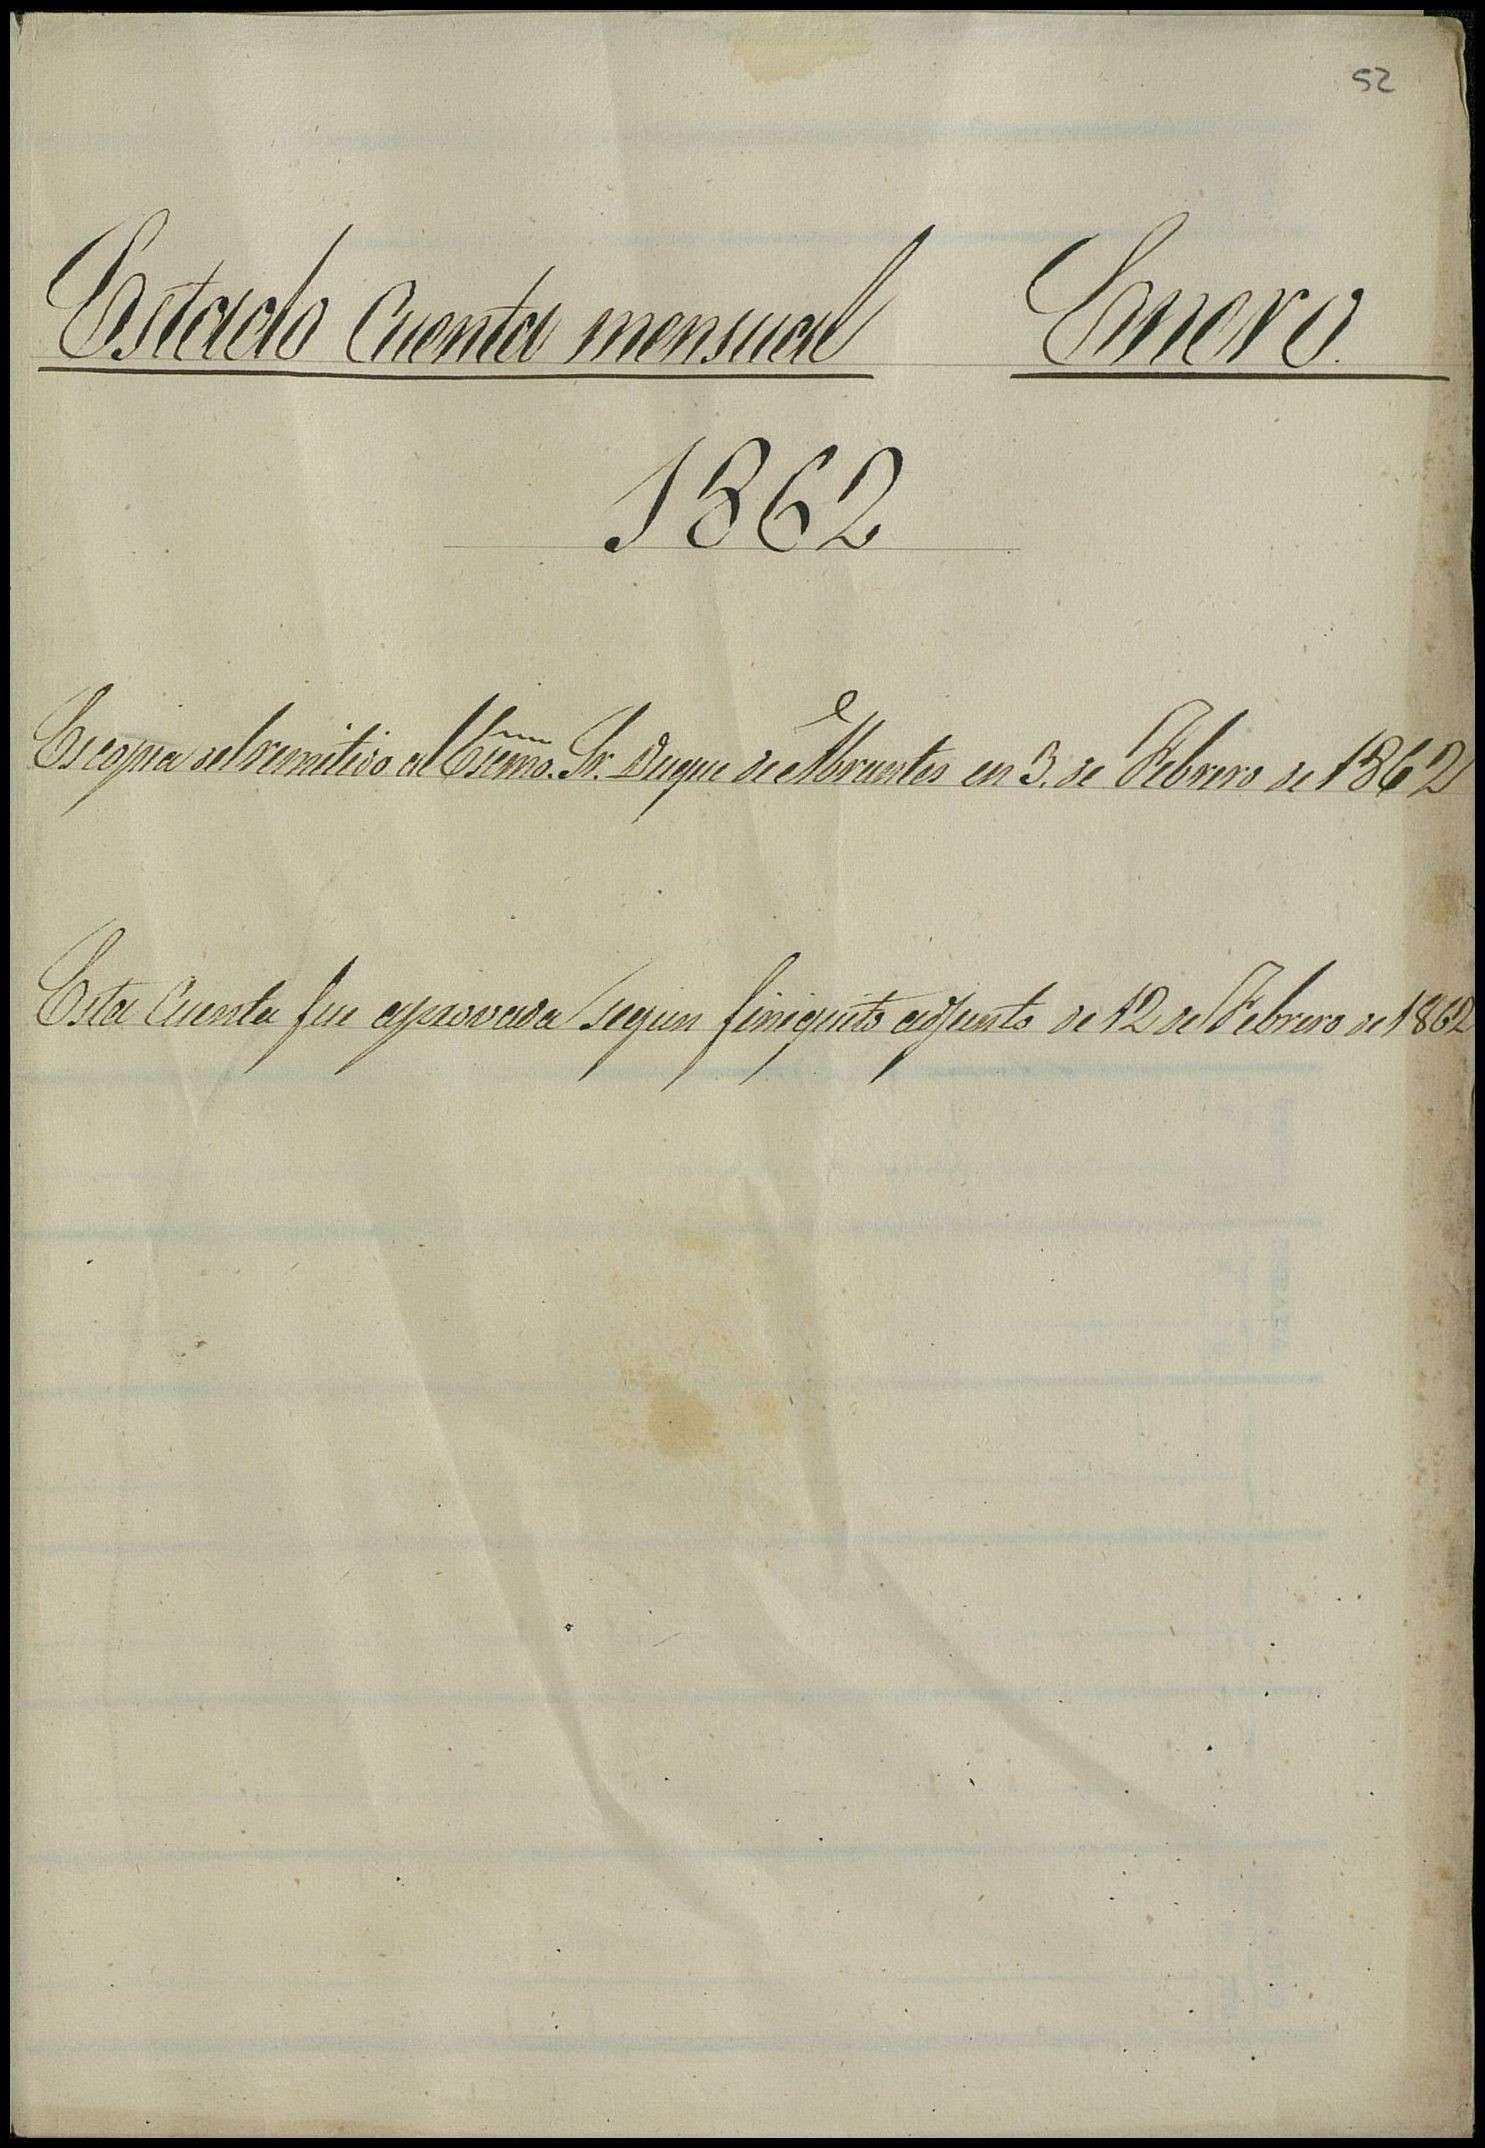 52
Estado Cuenta mensual Enero.
1862
Es copia del remitido al Esmo. Sr. Duque de Abrantes en 3. de Febrero de 1862
Esta Cuenta fue aprovada segun finiquito adjunto de 12 de Febrero de 1862